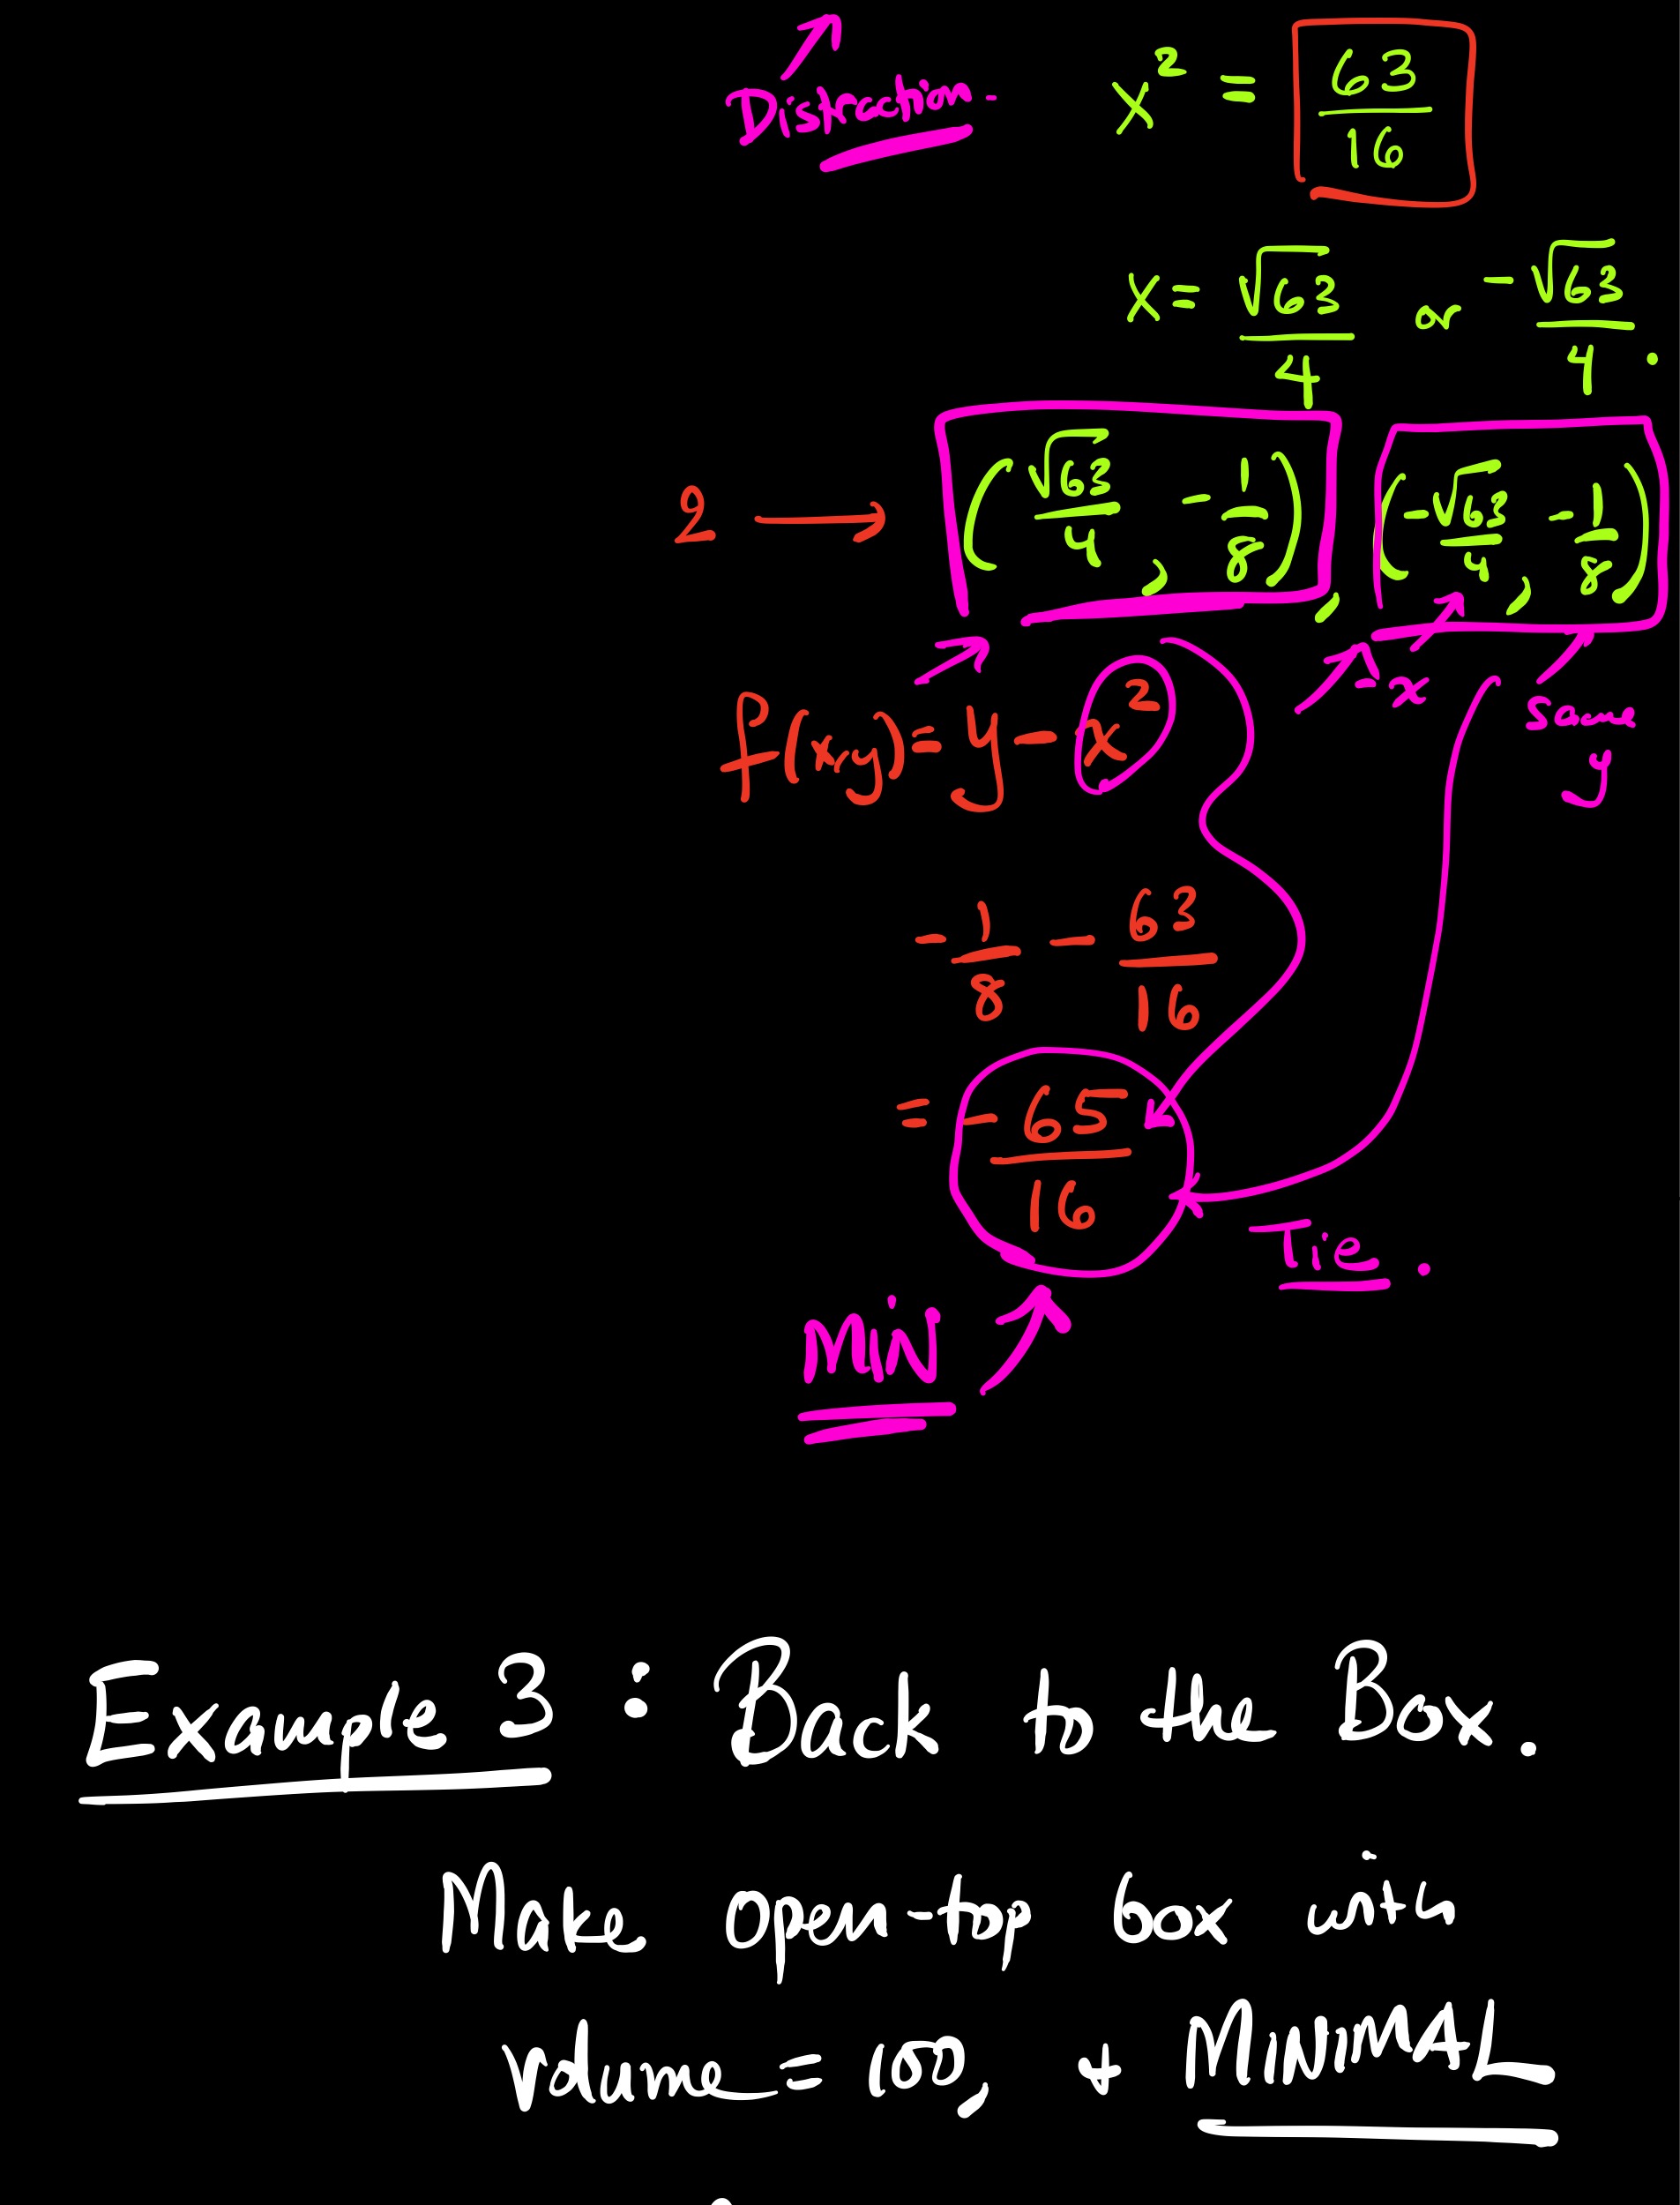 Distraction. x² = 63/16
x = √63/4 or -√63/4.
2 → (√63/4, -1/8), (-√63/4, -1/8)
-x same
y
f(x,y) = y - x²
-1/8 - 63/16
= -65/16
Tie.
MiN
Example 3 : Back to the Box.
Make open-top box with
volume = 100, + MINIMAL